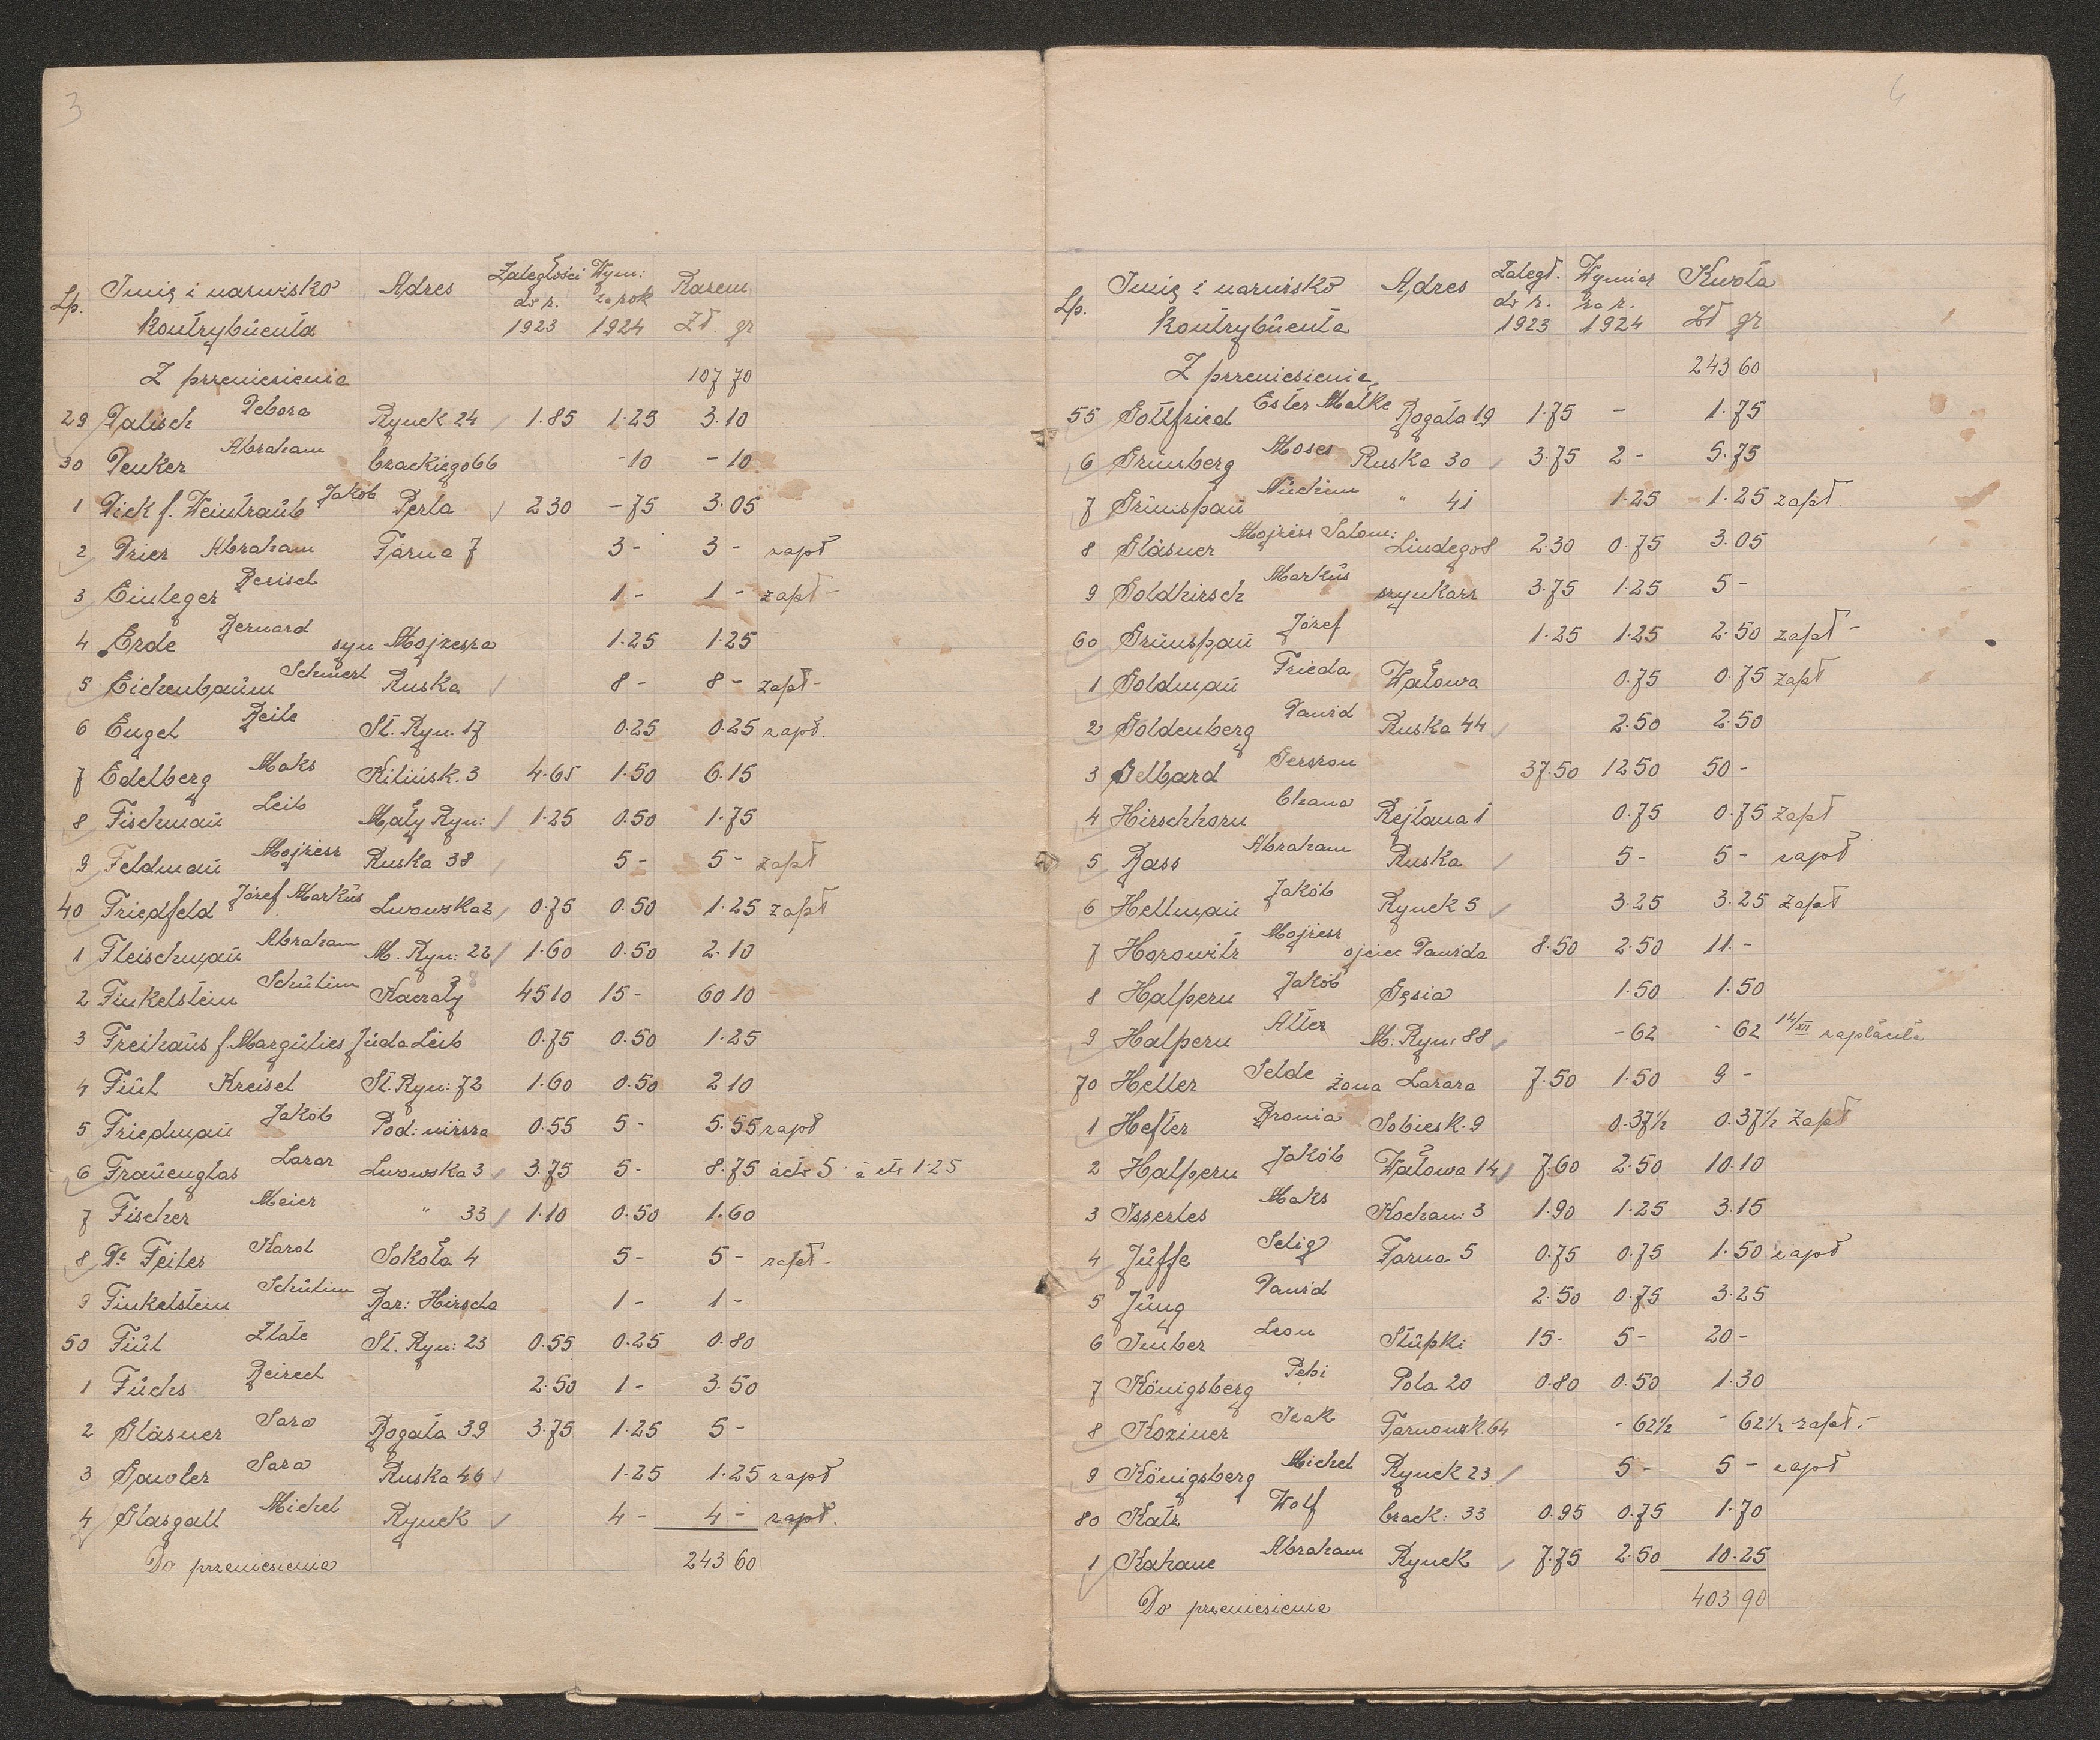 3
Lp. Imię i nazwisko kontrybuenta Adres Zaległości do r. 1923 Wym: za rok 1924 Razem Zł. gr
Z przeniesienia 107 70
29 Dalisch Debora Rynek 24 1.85 1.25 3.10
30 Denker Abraham Czackiego 66 -10 -10
1 Dick f. Weintraub Jakób Perla 2 30 -75 3.05
2 Drier Abraham Farna 7 3- 3- zapł
3 Einleger Berisch 1- 1- zapł-
4 Erde Bernard syn Mojzesza 1.25 1.25
5 Eichenbaum Schmerl Ruska 8- 8- zapł-
6 Engel Beile St. Ryn. 17 0.25 0.25 zapł.
7 Edelberg Maks Kilińsk. 3 4.65 1.50 6.15
8 Fischman Leib Mały Ryn: 1.25 0.50 1.75
9 Feldman Mojzesz Ruska 38 5- 5- zapł
40 Friedfeld Józef Markus Lwowska 2 0.75 0.50 1.25 zapł
1 Fleischman Abraham M. Ryn: 22 1.60 0.50 2.10
2 Finkelstein Schulim Kaczały 45 10 15- 60 10
3 Freihaus f. Margulies Juda Leib 0.75 0.50 1.25
4 Fiul Kreisel St. Ryn: 72 1.60 0.50 2 10
5 Friedman Jakób Pod: 0.55 5- 5.55 zapł
6 Frauenglas Lazar Lwowska 3 3.75 5- 8.75 5- 1.25
7 Fischer Meier " 33 1.10 0.50 1.60
8 Dr Feiles Karol Sokoła 4 5- 5- zapł-
9 Finkelstein Schulim Bar: Hirscha 1- 1-
50 Fiul Zlate St. Ryn: 23 0.55 0.25 0.80
1 Fuchs Beirech 2.50 1- 3.50
2 Gläsner Sara Bogata 39 3.75 1.25 5-
3 Gawler Sara Ruska 46 1.25 1.25 zapł
4 Glasgall Michel Rynek 4- 4- zapł.
Do przeniesienia 243 60
4
Lp. Imię i nazwisko kontrybuenta Adres Zaległ. do r. 1923 Wymiar za r. 1924 Kwota Zł gr
Z przeniesienia 243 60
55 Gottfried Ester Malke Bogata 19 1.75 - 1.75
6 Grünberg Moses Ruska 30 3.75 2- 5.75
7 Grünspan Nuchim " 41 1.25 1.25 zapł.
8 Gläsner Mojzesz Salom: Lindego 8 2.30 0.75 3.05
9 Goldhirsch Markus szynkarz 3.75 1.25 5-
60 Grünspan Józef 1.25 1.25 2.50 zapł-
1 Goldman Frieda Wałowa 0.75 0.75 zapł
2 Goldenberg Dawid Ruska 44 2.50 2.50
3 Gelbard Gerszon 37.50 12 50 50-
4 Hirschhorn Chana Rejtana 1 0.75 0.75 zapł
5 Hass Abraham Ruska 5- 5- zapł
6 Hellman Jakób Rynek 5 3.25 3.25 zapł
7 Horowitz Mojzesz ojciec Dawida 8.50 2.50 11.-
8 Halpern Jakób Gęsia 1.50 1.50
9 Halpern Alter M. Ryn: 88 -62 -62 14/XII zapłacila
70 Heller Selde żona Lazara 7.50 1.50 9-
1 Hefler Bronia Sobiesk. 9 0.37½ 0.37½ zapł
2 Halpern Jakób Wałowa 14 7.60 2.50 10.10
3 Isserles Maks Kochan: 3 1.90 1.25 3.15
4 Juffe Selig Farna 5 0.75 0.75 1.50 zapł
5 Jung Dawid 2.50 0.75 3.25
6 Imber Leon Słupki 15- 5- 20-
7 Königsberg Pebi Pola 20 0.80 0.50 1.30
8 Koziner Izak Tarnowsk. 64 -62½ -62½ zapł.-
9 Königsberg Michel Rynek 23 5- 5- zapł
80 Katz Wolf Czack: 33 0.95 0.75 1.70
1 Kahane Abraham Rynek 7.75 2.50 10.25
Do przeniesienia 403 90